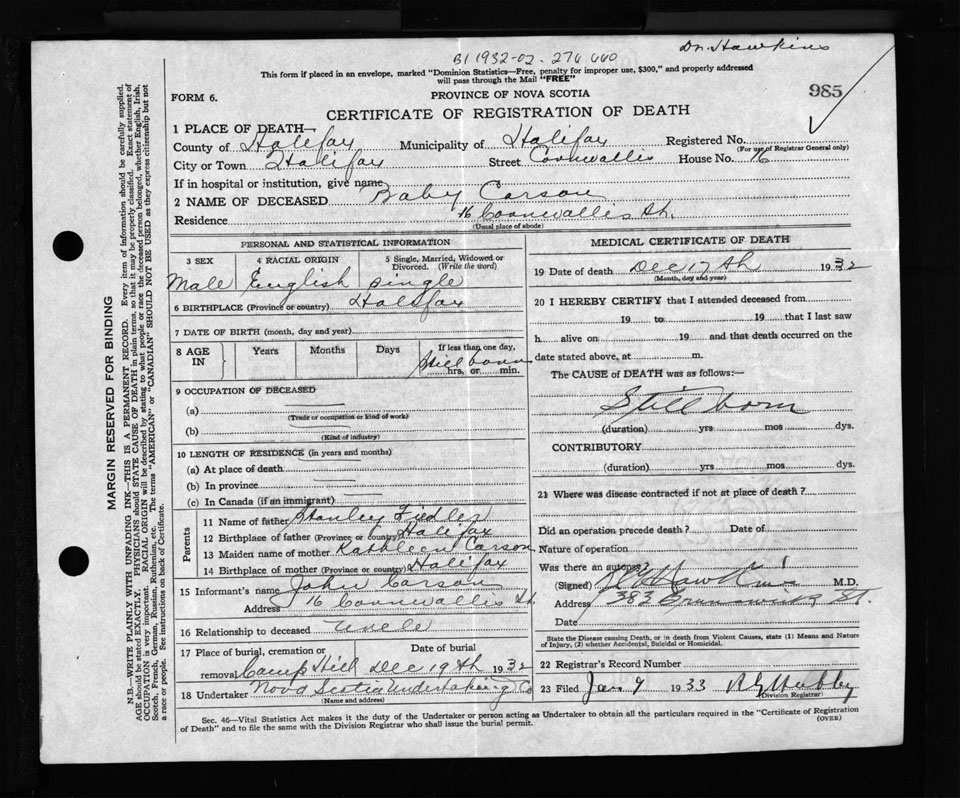 Dr. Hawkins
B1 1932-02-276660
This form if placed in an envelope, marked "Dominion Statistics—Free, penalty for improper use, $300," and properly addressed
will pass through the Mail "FREE"
985
FORM 6.
PROVINCE OF NOVA SCOTIA
CERTIFICATE OF REGISTRATION OF DEATH
1 PLACE OF DEATH—
County of Halifax Municipality of Halifax Registered No.
(For use of Registrar General only)
City or Town Halifax Street Cornwallis House No. 16
If in hospital or institution, give name
2 NAME OF DECEASED Baby Carson
Residence 16 Cornwallis St.
(Usual place of abode)
PERSONAL AND STATISTICAL INFORMATION
3 SEX 4 RACIAL ORIGIN 5 Single, Married, Widowed or Divorced. (Write the word)
Male English single
6 BIRTHPLACE (Province or country) Halifax
7 DATE OF BIRTH (month, day and year)
8 AGE IN Years Months Days If less than one day, Still born hrs. or min.
9 OCCUPATION OF DECEASED
(a)
(Trade or occupation or kind of work)
(b)
(Kind of industry)
10 LENGTH OF RESIDENCE (in years and months)
(a) At place of death
(b) In province
(c) In Canada (if an immigrant)
Parents
11 Name of father Stanley Fiedler
12 Birthplace of father (Province or country) Halifax
13 Maiden name of mother Kathleen Carson
14 Birthplace of mother (Province or country) Halifax
15 Informant's name John Carson
Address 16 Cornwallis St.
16 Relationship to deceased Uncle
17 Place of burial, cremation or removal Date of burial
Camp Hill Dec 19th 1932
18 Undertaker Nova Scotia Undertaking Co
(Name and address)
MEDICAL CERTIFICATE OF DEATH
19 Date of death Dec 17th 1932
(Month, day and year)
20 I HEREBY CERTIFY that I attended deceased from
19 to 19 that I last saw
h alive on 19 and that death occurred on the
date stated above, at m.
The CAUSE of DEATH was as follows:—
Still born
(duration) yrs mos dys.
CONTRIBUTORY
(duration) yrs mos dys.
21 Where was disease contracted if not at place of death?
Did an operation precede death? Date of
Nature of operation
Was there an autopsy?
(Signed) Hawkins M.D.
Address 383 Brunswick St.
Date
State the Disease causing Death, or in death from Violent Causes, state (1) Means and Nature
of Injury, (2) whether Accidental, Suicidal or Homicidal.
22 Registrar's Record Number
23 Filed Jan 9 1933
Division Registrar
Sec. 46—Vital Statistics Act makes it the duty of the Undertaker or person acting as Undertaker to obtain all the particulars required in the "Certificate of Registration
of Death" and to file the same with the Division Registrar who shall issue the burial permit. (OVER)
MARGIN RESERVED FOR BINDING
N.B.—WRITE PLAINLY WITH UNFADING INK—THIS IS A PERMANENT RECORD. Every item of information should be carefully supplied.
AGE should be stated EXACTLY. PHYSICIANS should STATE CAUSE OF DEATH in plain terms, so that it may be properly classified. Exact statement of
OCCUPATION is very important. RACIAL ORIGIN will be described by stating to what people or race the deceased person belonged, whether English, Irish,
Scotch, French, German, Russian, Ruthenian, etc. The terms "AMERICAN" or "CANADIAN" SHOULD NOT BE USED as they express citizenship but not
a race or people. See instructions on back of Certificate.